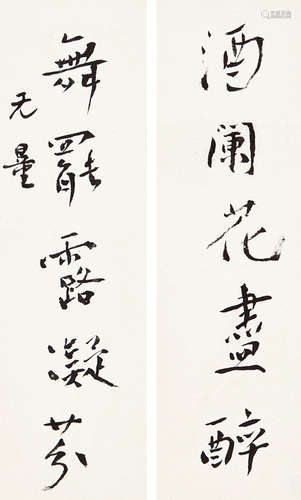 酒闌花盡醉
舞罷露凝芬
无量